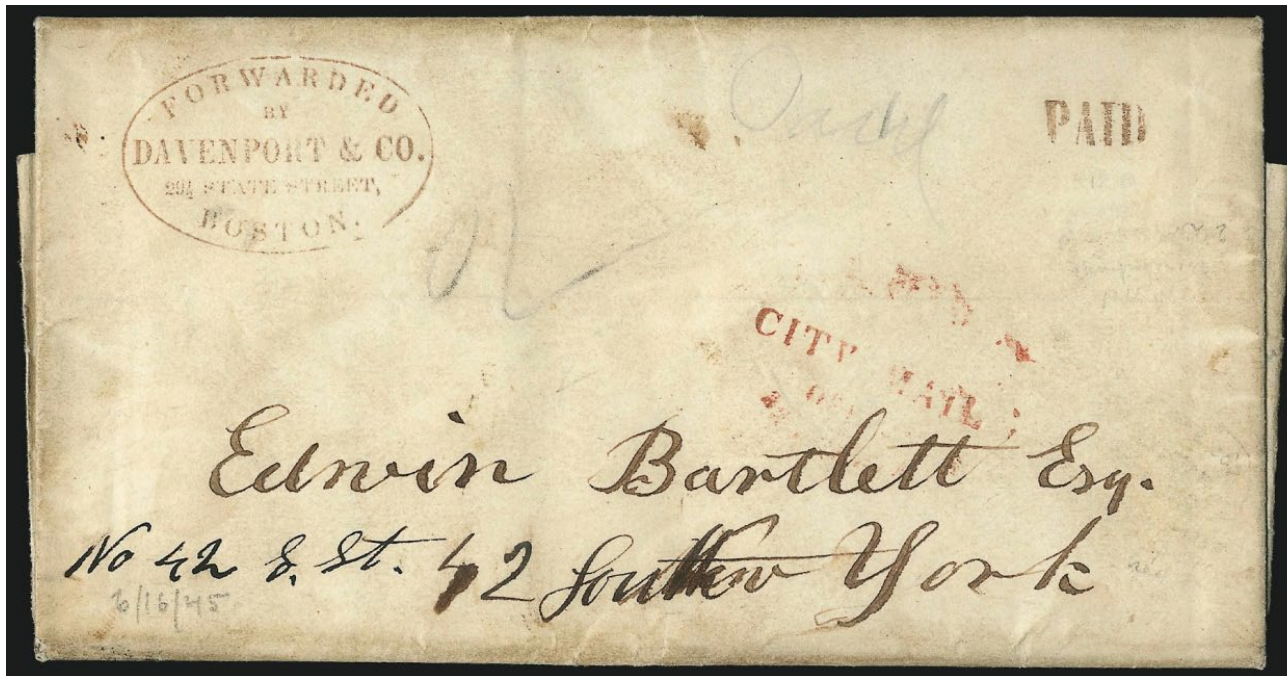 FORWARDED
BY
DAVENPORT & CO.
20½ STATE STREET,
BOSTON.
PAID
CITY MAIL
Edwin Bartlett Esq.
No 42 S. St. 42 South York
6/16/45